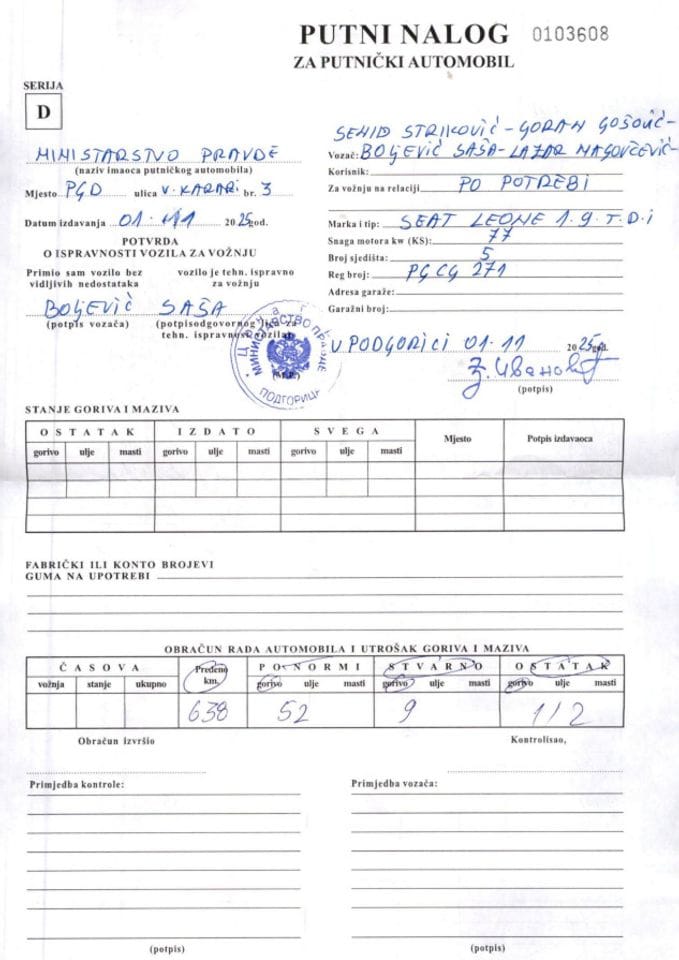 PUTNI NALOG 0103608
ZA PUTNIČKI AUTOMOBIL
SERIJA
D
MINISTARSTVO PRAVDE
(naziv imaoca putničkog automobila)
Mjesto PGD ulica V. KARAĐ. br. 3
Datum izdavanja 01.-11 2025god.
POTVRDA
O ISPRAVNOSTI VOZILA ZA VOŽNJU
Primio sam vozilo bez vozilo je tehn. ispravno
vidljivih nedostataka za vožnju
BOLJEVIĆ SAŠA
(potpis vozača) (potpisodgovornog lica za
tehn. ispravnost vozila)
SENID STRIKOVIĆ - GORAN GOŠOVIĆ -
Vozač: BOLJEVIĆ SAŠA - LAZAR
Korisnik:
Za vožnju na relaciji PO POTREBI
Marka i tip: SEAT LEONE 1.9. T.D.i
Snaga motora kw (KS): 77
Broj sjedišta: 5
Reg broj: PGCG 271
Adresa garaže:
Garažni broj:
U PODGORICI 01.11 2025god.
(potpis)
Црна Гора
МИНИСТАРСТВО ПРАВДЕ
ПОДГОРИЦА
(M.P.)
STANJE GORIVA I MAZIVA
OSTATAK IZDATO SVEGA Mjesto Potpis izdavaoca
gorivo ulje masti gorivo ulje masti gorivo ulje masti
FABRIČKI ILI KONTO BROJEVI
GUMA NA UPOTREBI
OBRAČUN RADA AUTOMOBILA I UTROŠAK GORIVA I MAZIVA
ČASOVA Pređeno km. PO NORMI STVARNO OSTATAK
vožnja stanje ukupno gorivo ulje masti gorivo ulje masti gorivo ulje masti
638 52 9 1/2
Obračun izvršio Kontrolisao,
Primjedba kontrole: Primjedba vozača:
(potpis) (potpis)